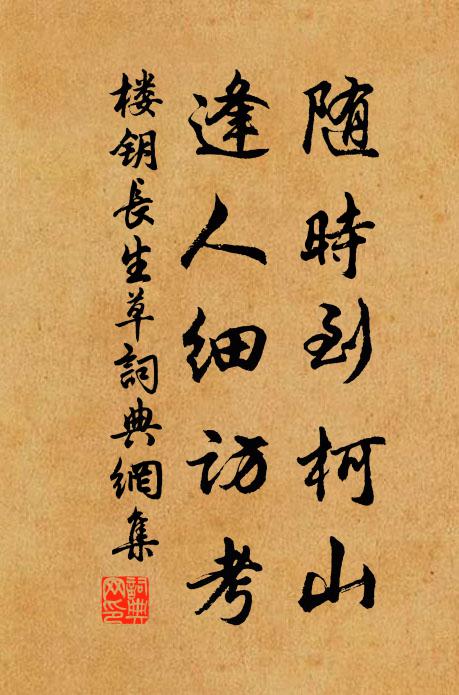 随時到柯山
逢人细访考
楼钥長生草詞典網集
詞典
网印